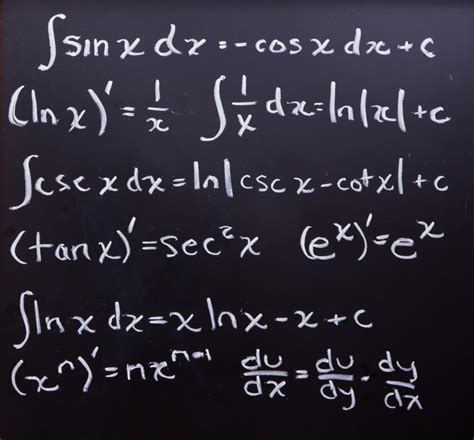 ∫sin x dx = -cos x dx + c
(ln x)' = 1/x   ∫1/x dx = ln|x| + c
∫csc x dx = ln|csc x - cot x| + c
(tan x)' = sec²x   (eˣ)' = eˣ
∫ln x dx = x ln x - x + c
(xⁿ)' = nxⁿ⁻¹   du/dx = du/dy · dy/dx